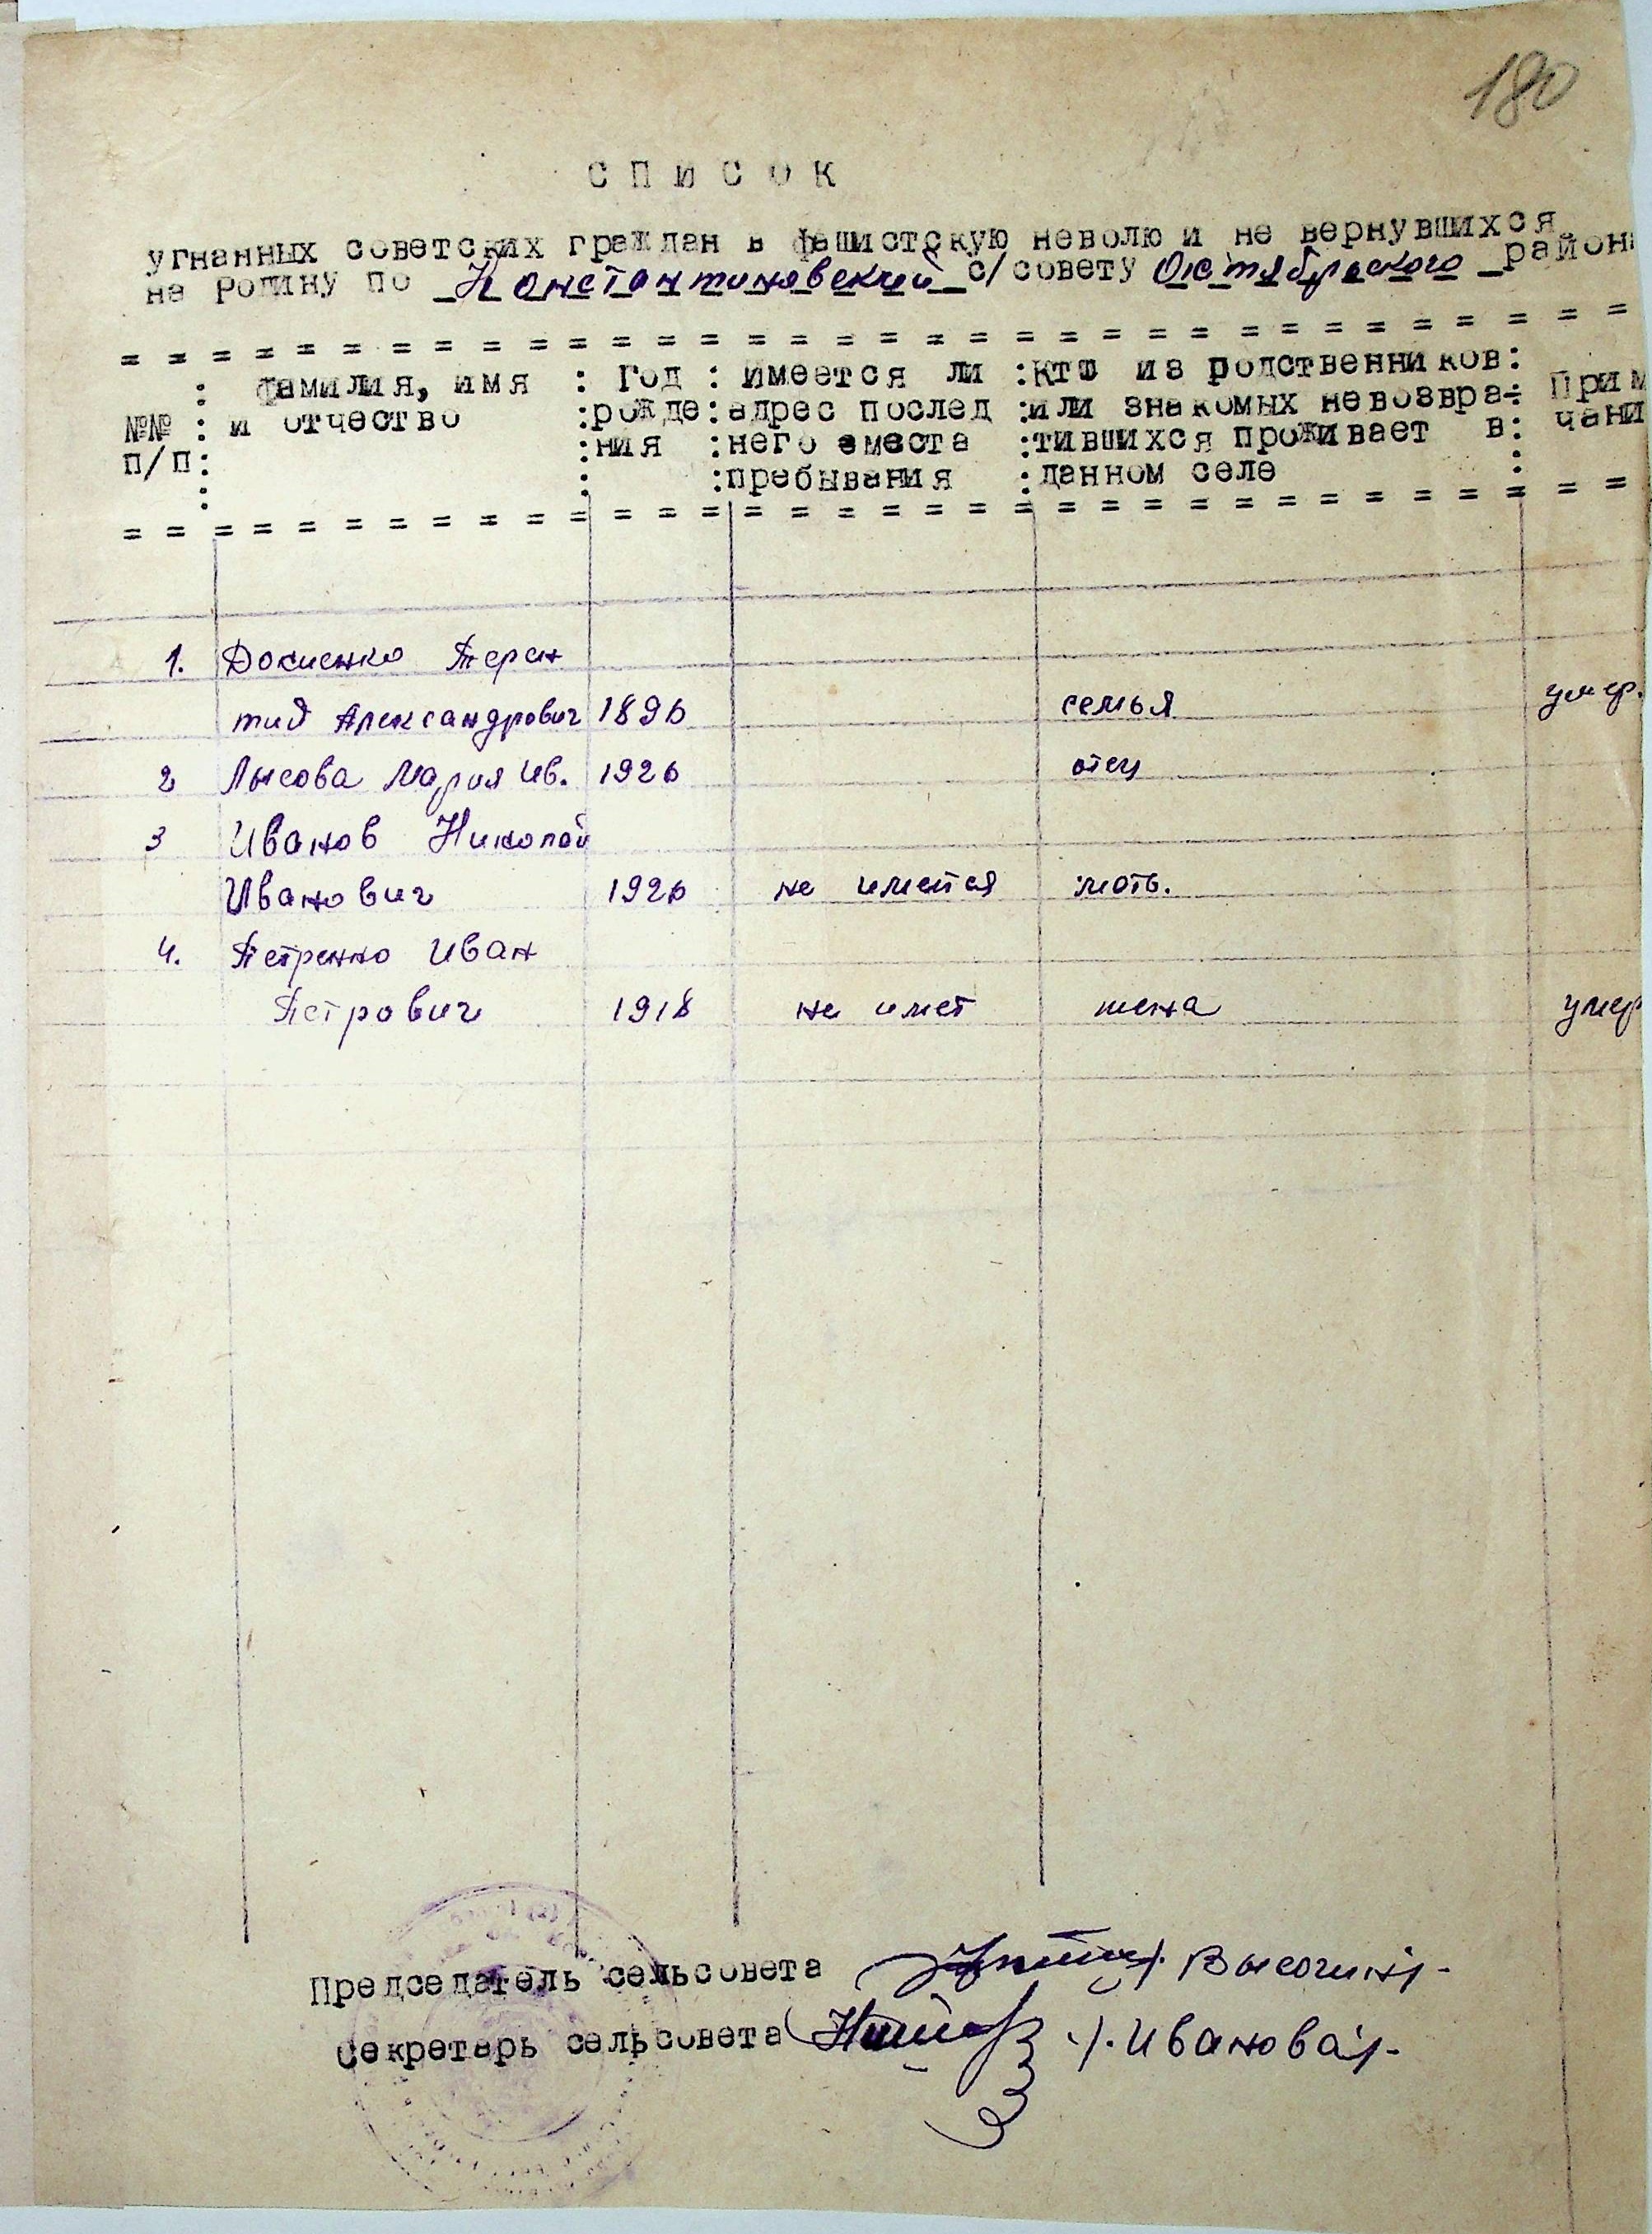 180
СПИСОК
угнанных советских граждан в фашистскую неволю и не вернувшихся
на Родину по Константиновский с/совету Октябрьского район
№№ п/п : фамилия, имя и отчество : Год рожде ния : имеется ли адрес послед него места пребывания : кто из родственников или знакомых невозвра- тившихся проживает в данном селе : Прим чани
1. Докиенко Терен
тий Александрович 1896 семья умер.
2 Лысова Мария Ив. 1926 отец
3 Иванов Николай
Иванович 1926 не имеется мать.
4. Петренко Иван
Петрович 1918 не имеет жена умер
Председатель сельсовета /Высочин/-
Секретарь сельсовета /Иванова/-